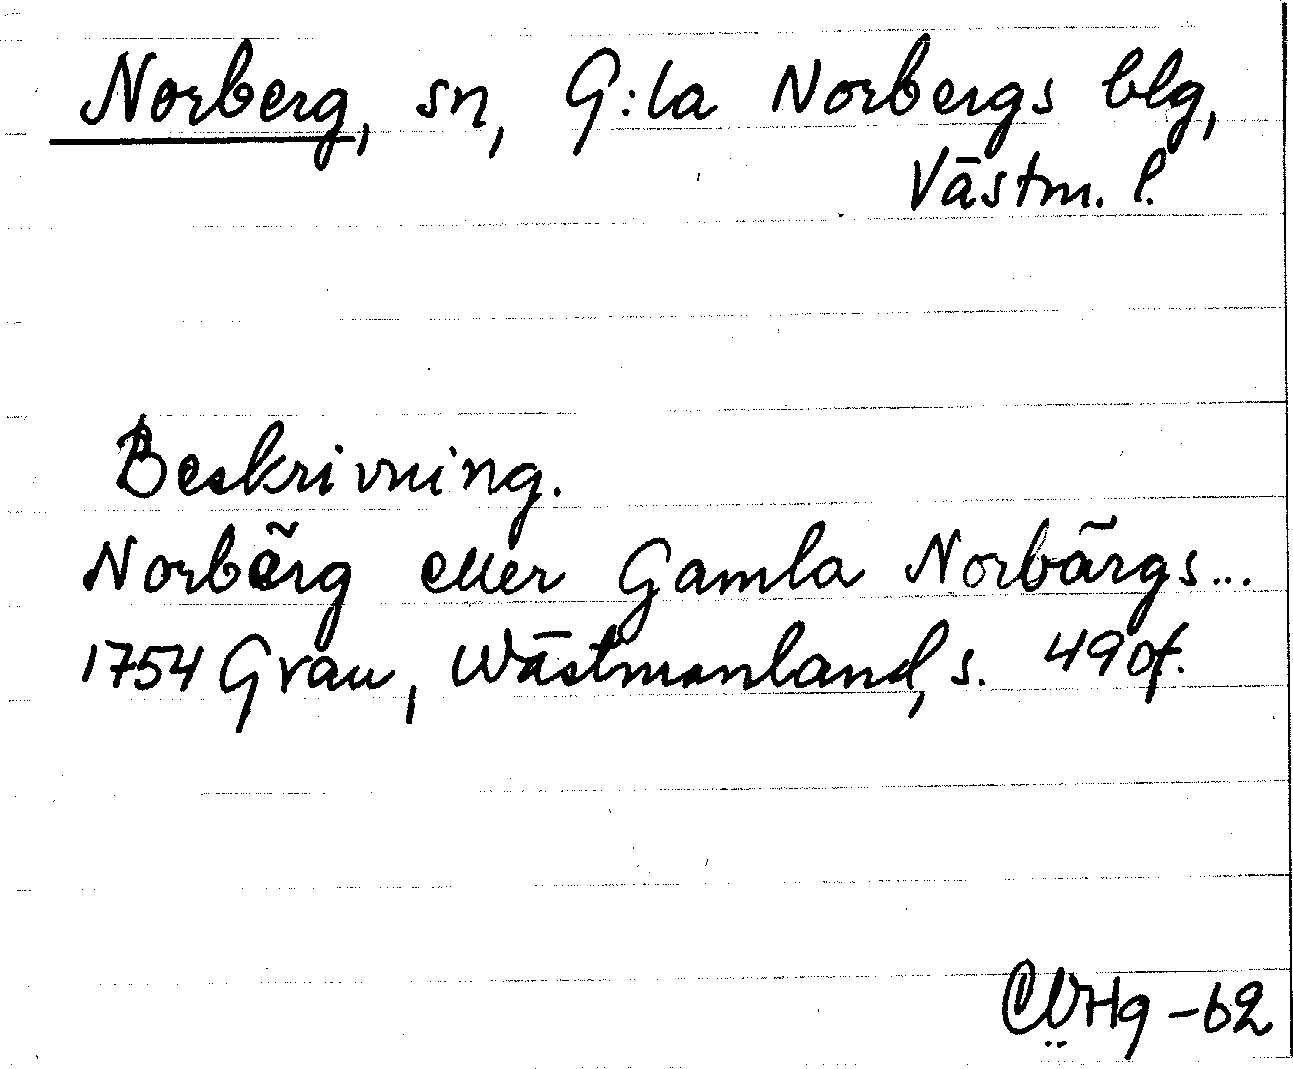 Norberg, sn, G:la Norbergs blg,
Västm. l.
Beskrivning.
Norbärg eller Gamla Norbärgs...
1754 Grau, Wästmanland, s. 490f.
-62